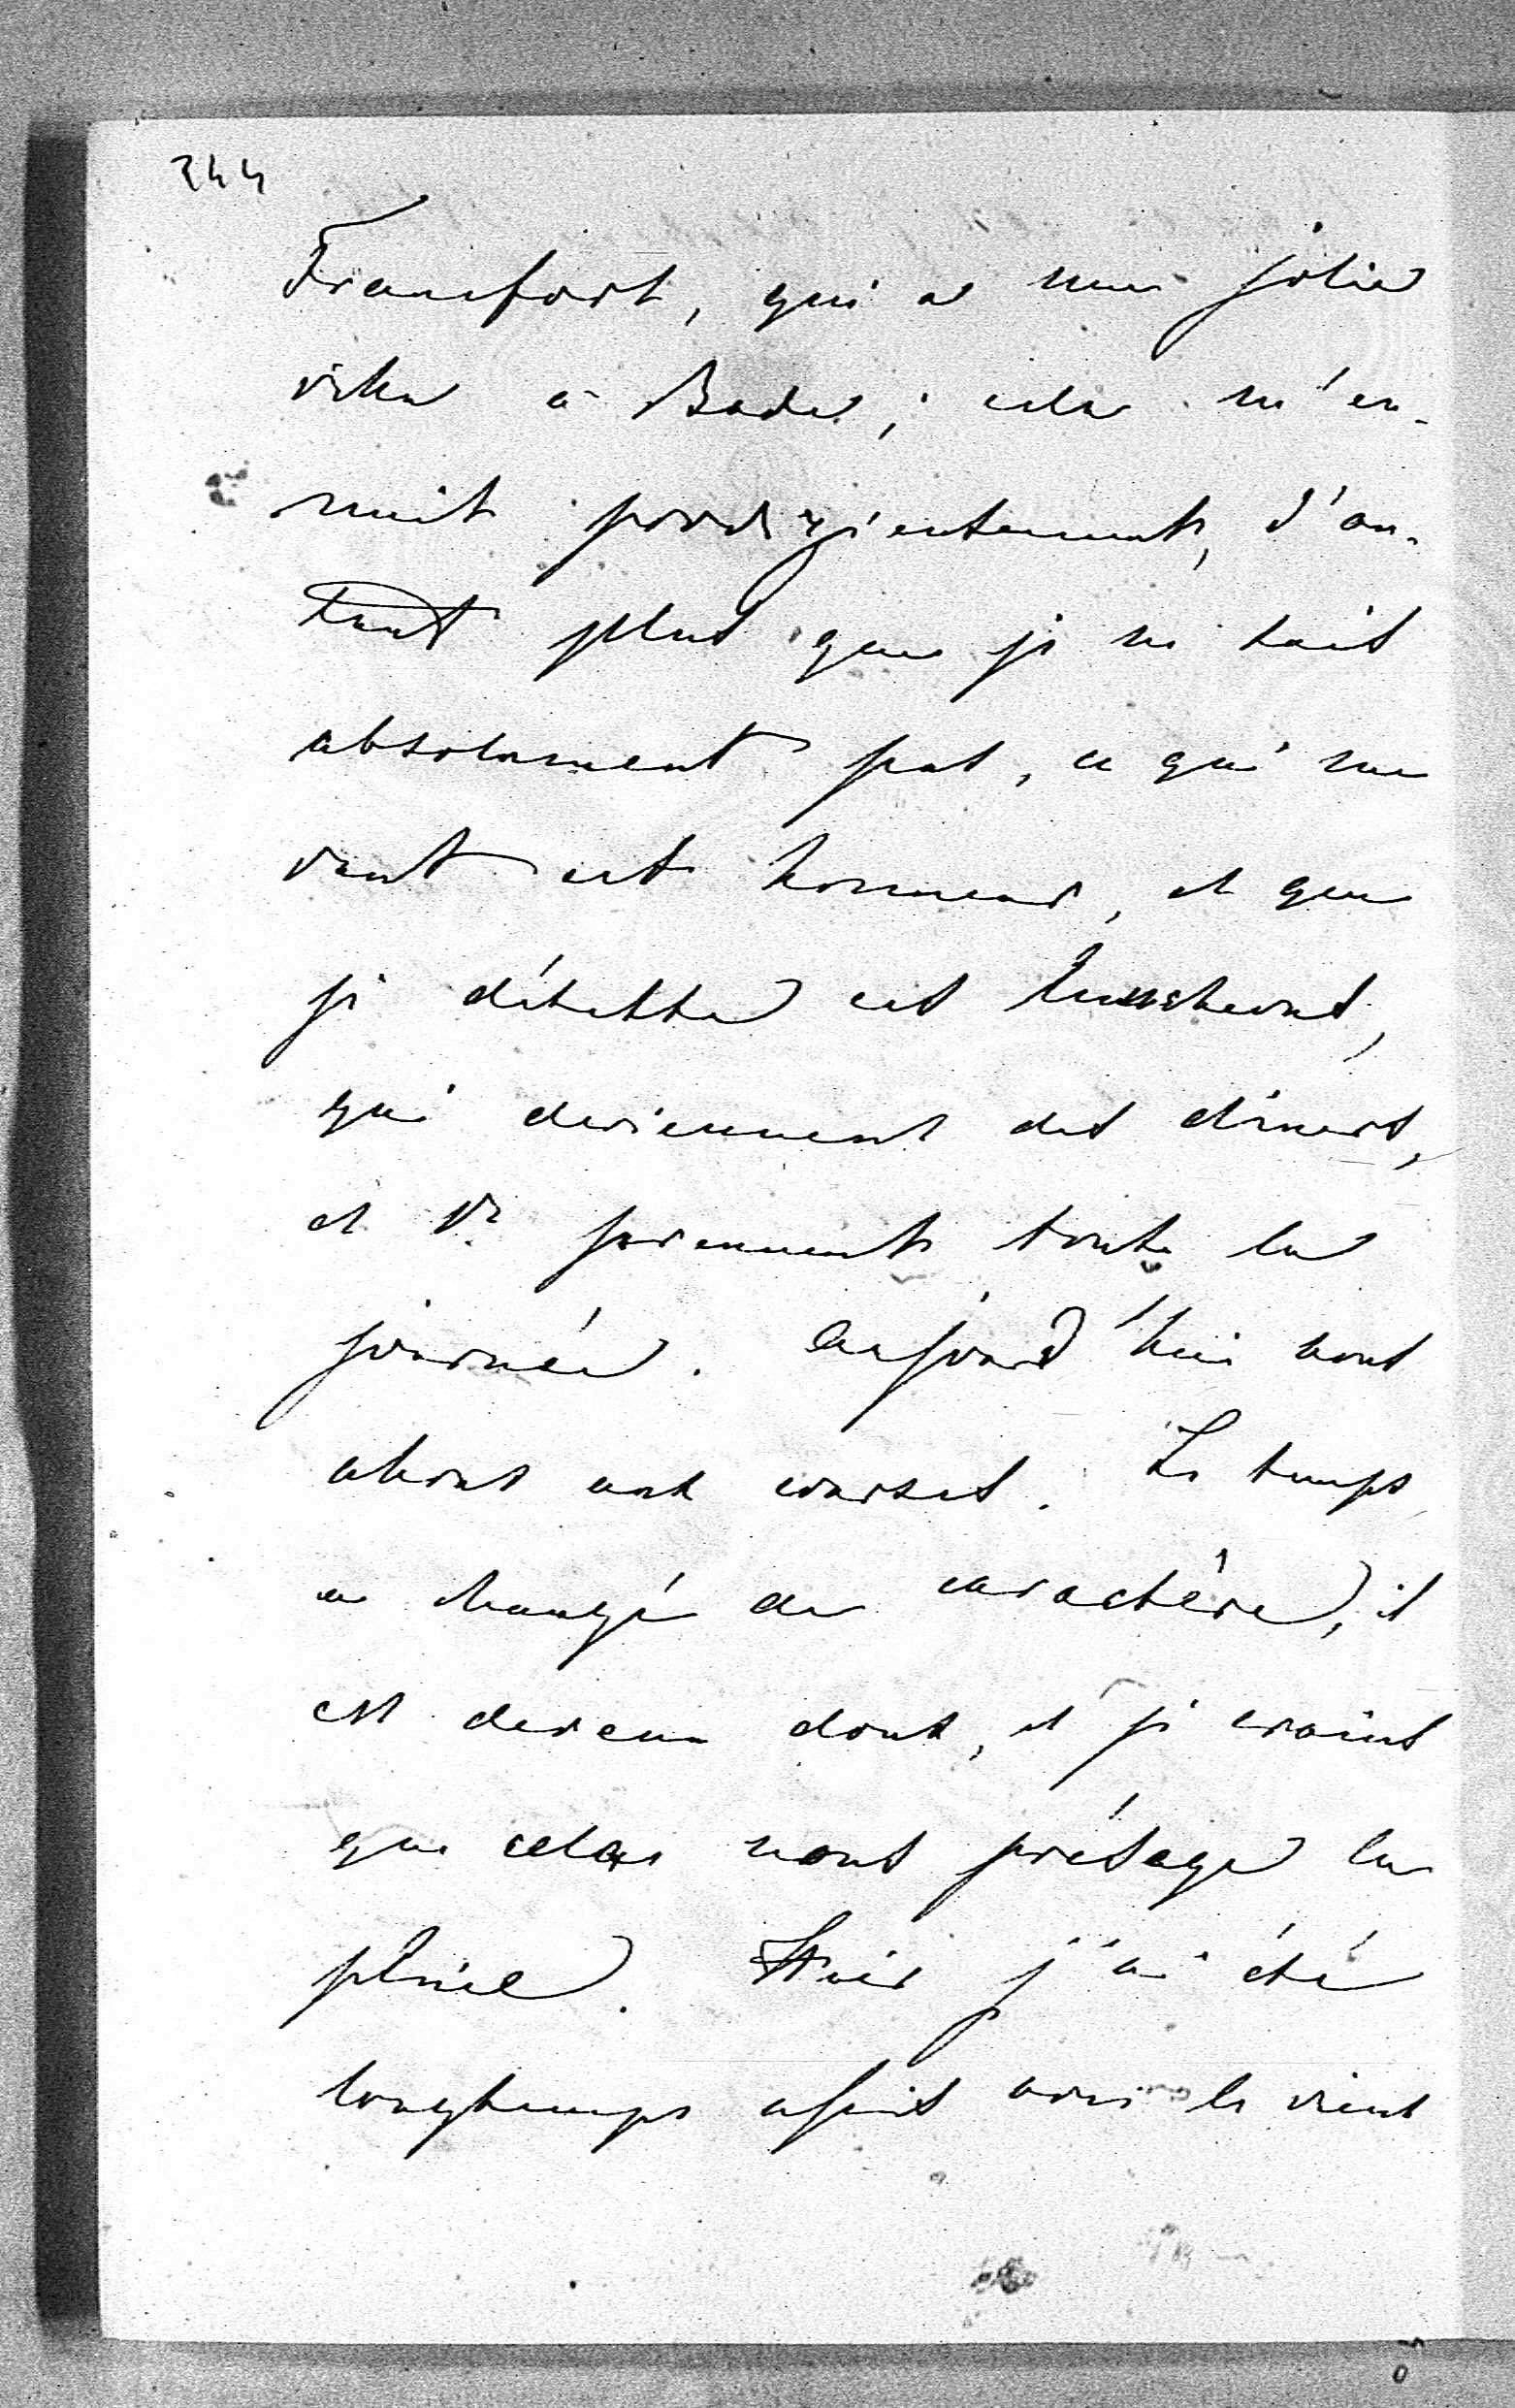 244
Francfort, qui a une jolie
villa à Bade; cela m'en-
nuit prodigieusement, d'au-
tant plus que je ne sais
absolument pas, ce qui me
vaut cet honneur, et que
je déteste ces luncheons,
qui deviennent des dîners,
et vs prennent toute la
journée. Aujourd'hui nous
allons aux courses. Le temps
a changé de caractère, il
est devenu doux, et je crains
que cela nous présage la
pluie. Hier j'ai été
longtemps assis avec le vieux